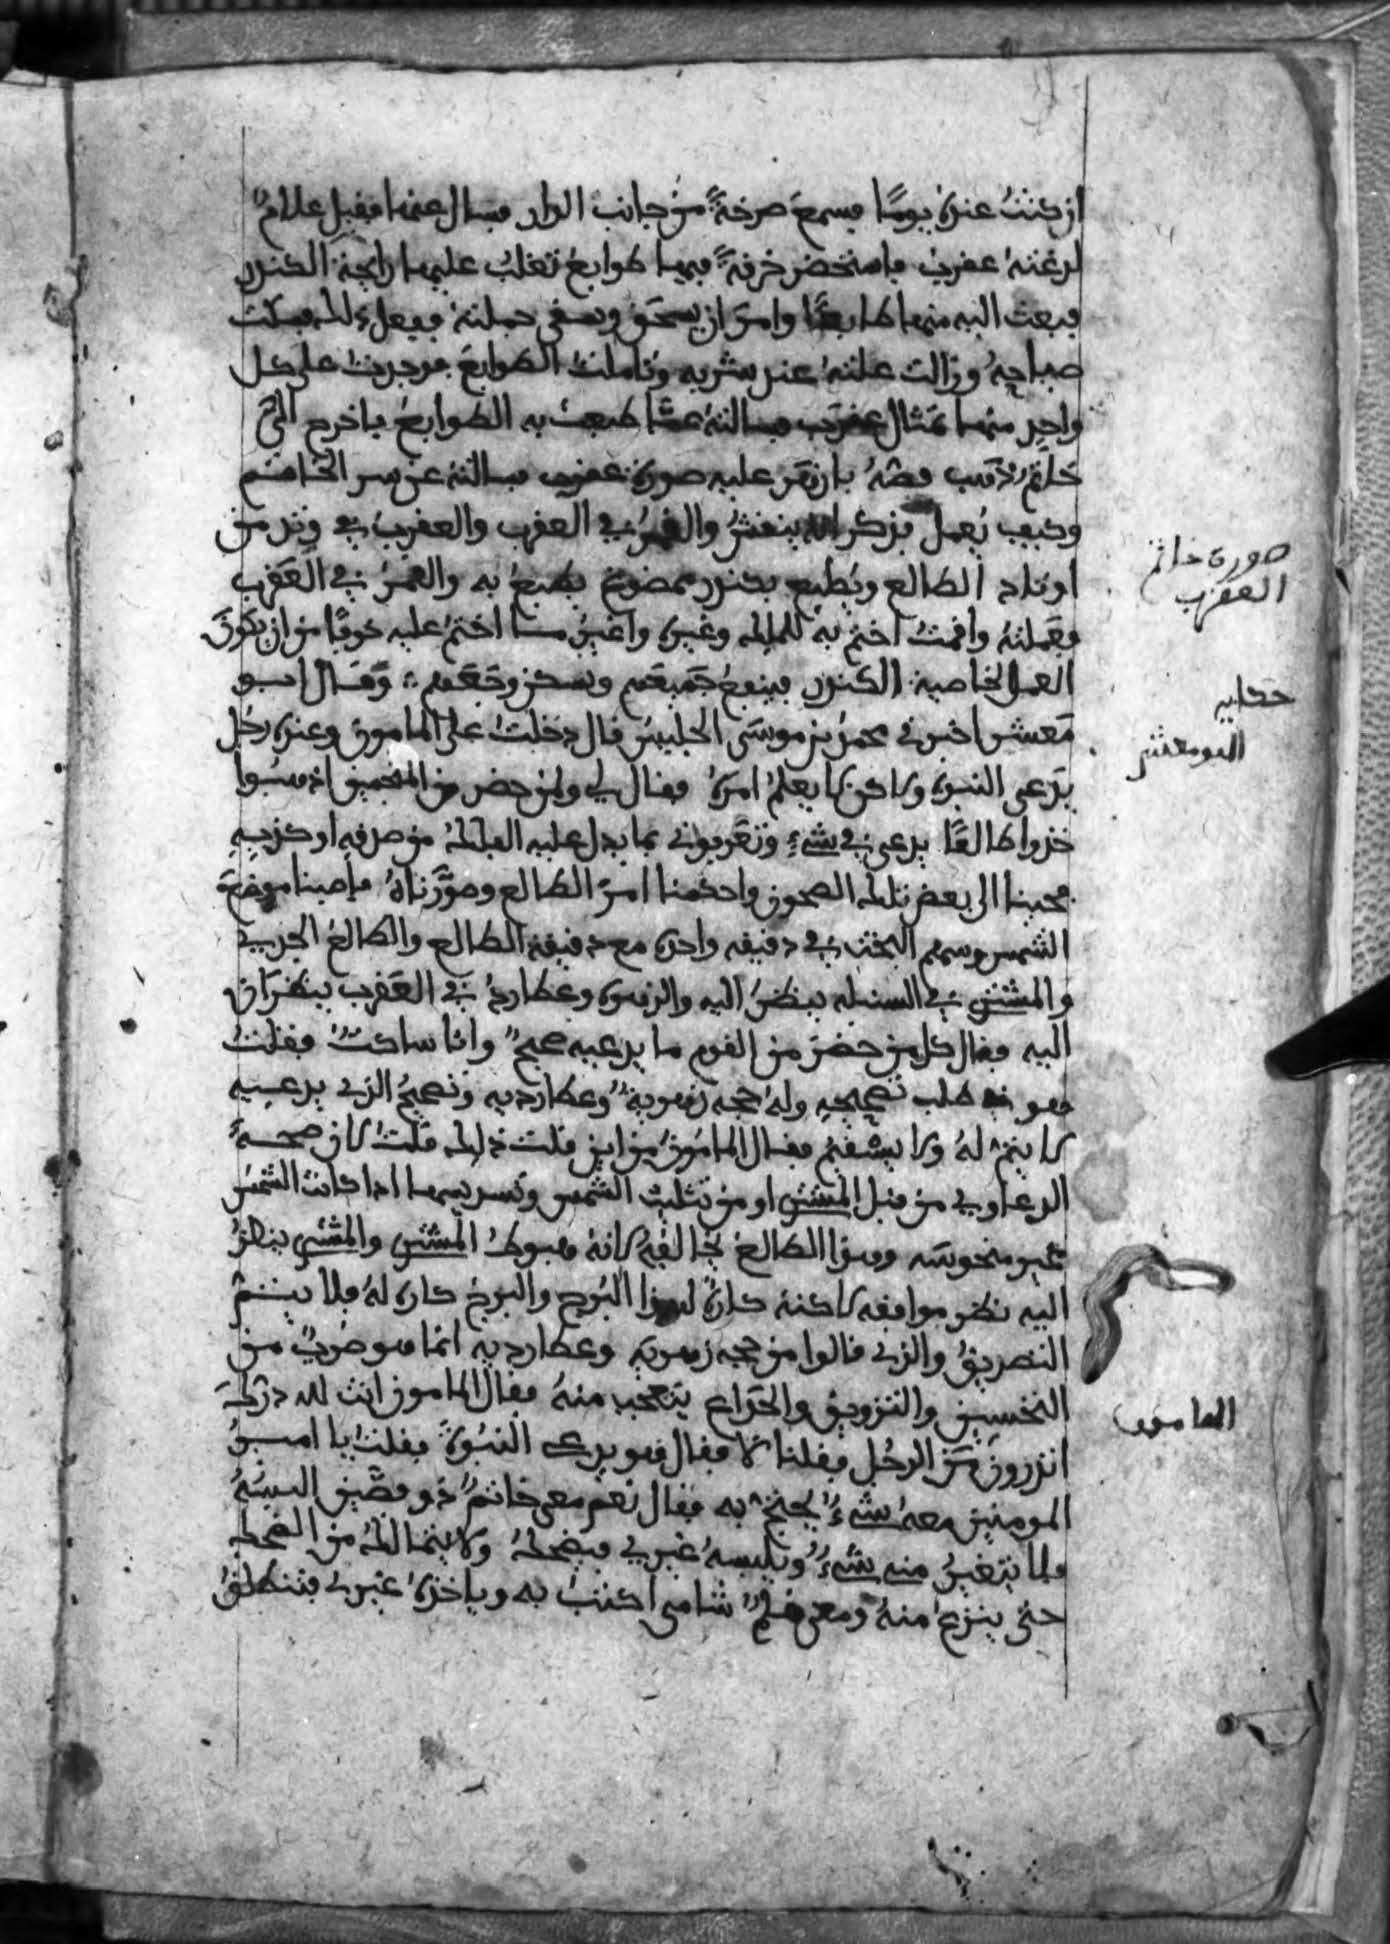 اذ كنتُ عنده يومًا فسمع صرخةً من جانب الدار فسال عنها فقيل غلامٌ
لدغته عقرب فاستحضر خرقةً فيها طوابع تغلب عليها رايحة الكندر
فبعث اليه منها طابعًا وامر ان يسحق ويسقى جملته ففعل ذلك فسكت
صياحه وزالت علته عند شربه وتاملت الطوابع فوجدت على كل
واحد منها تمثال عقرب فسالته عمّا طبعت به الطوابع فاخرج الي
خاتم ذهب فصه بازهر عليه صورة عقرب فسالته عن سر الخاتم
وكيف يُعمل فذكر انه ينقش والقمر في العقرب والعقرب في وتد من
اوتاد الطالع ويُطبع بكندر ممضوغ يطبع به والقمر في العقرب
فعملته واقمت اختم به كذلك وغيره واغير ما اختم عليه خوفًا من ان يكون
العمل لخاصية الكندر فينفع جميعهم ويسكن وجعهم وقال ابو
معشر اخبرني محمد بن موسى الجليس قال دخلت على المامون وعنده رجل
يدعى النبوة ولاكن لا يعلم امره فقال لي ولمن حضر من المنجمين اذهبوا
خذوا طالعًا يدعى في شيءٍ وتعرفوني بما يدل عليه الفلك من صدقه او كذبه
فجينا الى بعض تلك الصحون واحكمنا امر الطالع وصوّرناه فاصبنا موضع
الشمس وسهم البخت في دقيقه واحدة مع دقيقة الطالع والطالع الجدي
والمشتري في السنبله ينظر اليه والزهره وعطارد في العقرب ينظران
اليه فقال كل من حضر من القوم ما يدعيه صحيحٌ وانا ساكتٌ فقلت
هو في طلب تصحيحه وله حجه زهويةٌ وعطارديه وتصحيح الذي يدعيه
لا يتم له ولا يستقيم فقال المامون من اين قلت ذلك قلت لان صحة
الدعاوي من قبل المشتري او من تثليث الشمس وتسديسها اذا كانت الشمس
غير منحوسه وهذا الطالع يخالفه لانه هبوط المشتري والمشتري ينظر
اليه نظر موافقه لاكنه كارهٌ لهذا البرج والبرج كاره له فلا يتم
التصديق والذي قالوا من حجه زهويه وعطارديه انما هو ضربٌ من
التحسين والتزويق والخداع يتعجب منه فقال المامون انت لله درك
اتدرون من الرجل فقلنا لا فقال هو يدعى النبوة فقلت يا امير
المومنين معه شيءٌ يحتج به فقال نعم معي خاتمٌ ذو فصّين البسه
فلا يتغير منه شيءٌ ويلبسه غيري فيضحك ولا يتمالك من الضحك
حتى ينزع منه ومعي قلمٌ شامي اكتب به وياخذه غيري فتنطلق
صورة خاتم
العقرب
حكايه
ابو معشر
المامون